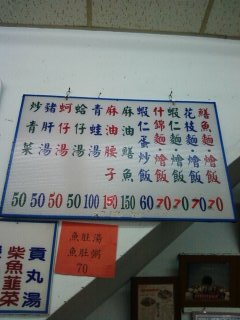 鱔魚麵·燴飯 70
花枝麵·燴飯 70
蝦仁麵·燴飯 70
什錦麵·燴飯 70
蝦仁蛋炒飯 60
麻油鱔魚 150
麻油腰子
青蛙湯 100
蛤仔湯 50
蚵仔湯 50
豬肝湯 50
炒青菜 50
魚肚湯
魚肚粥
70
貢丸湯
柴魚韭菜